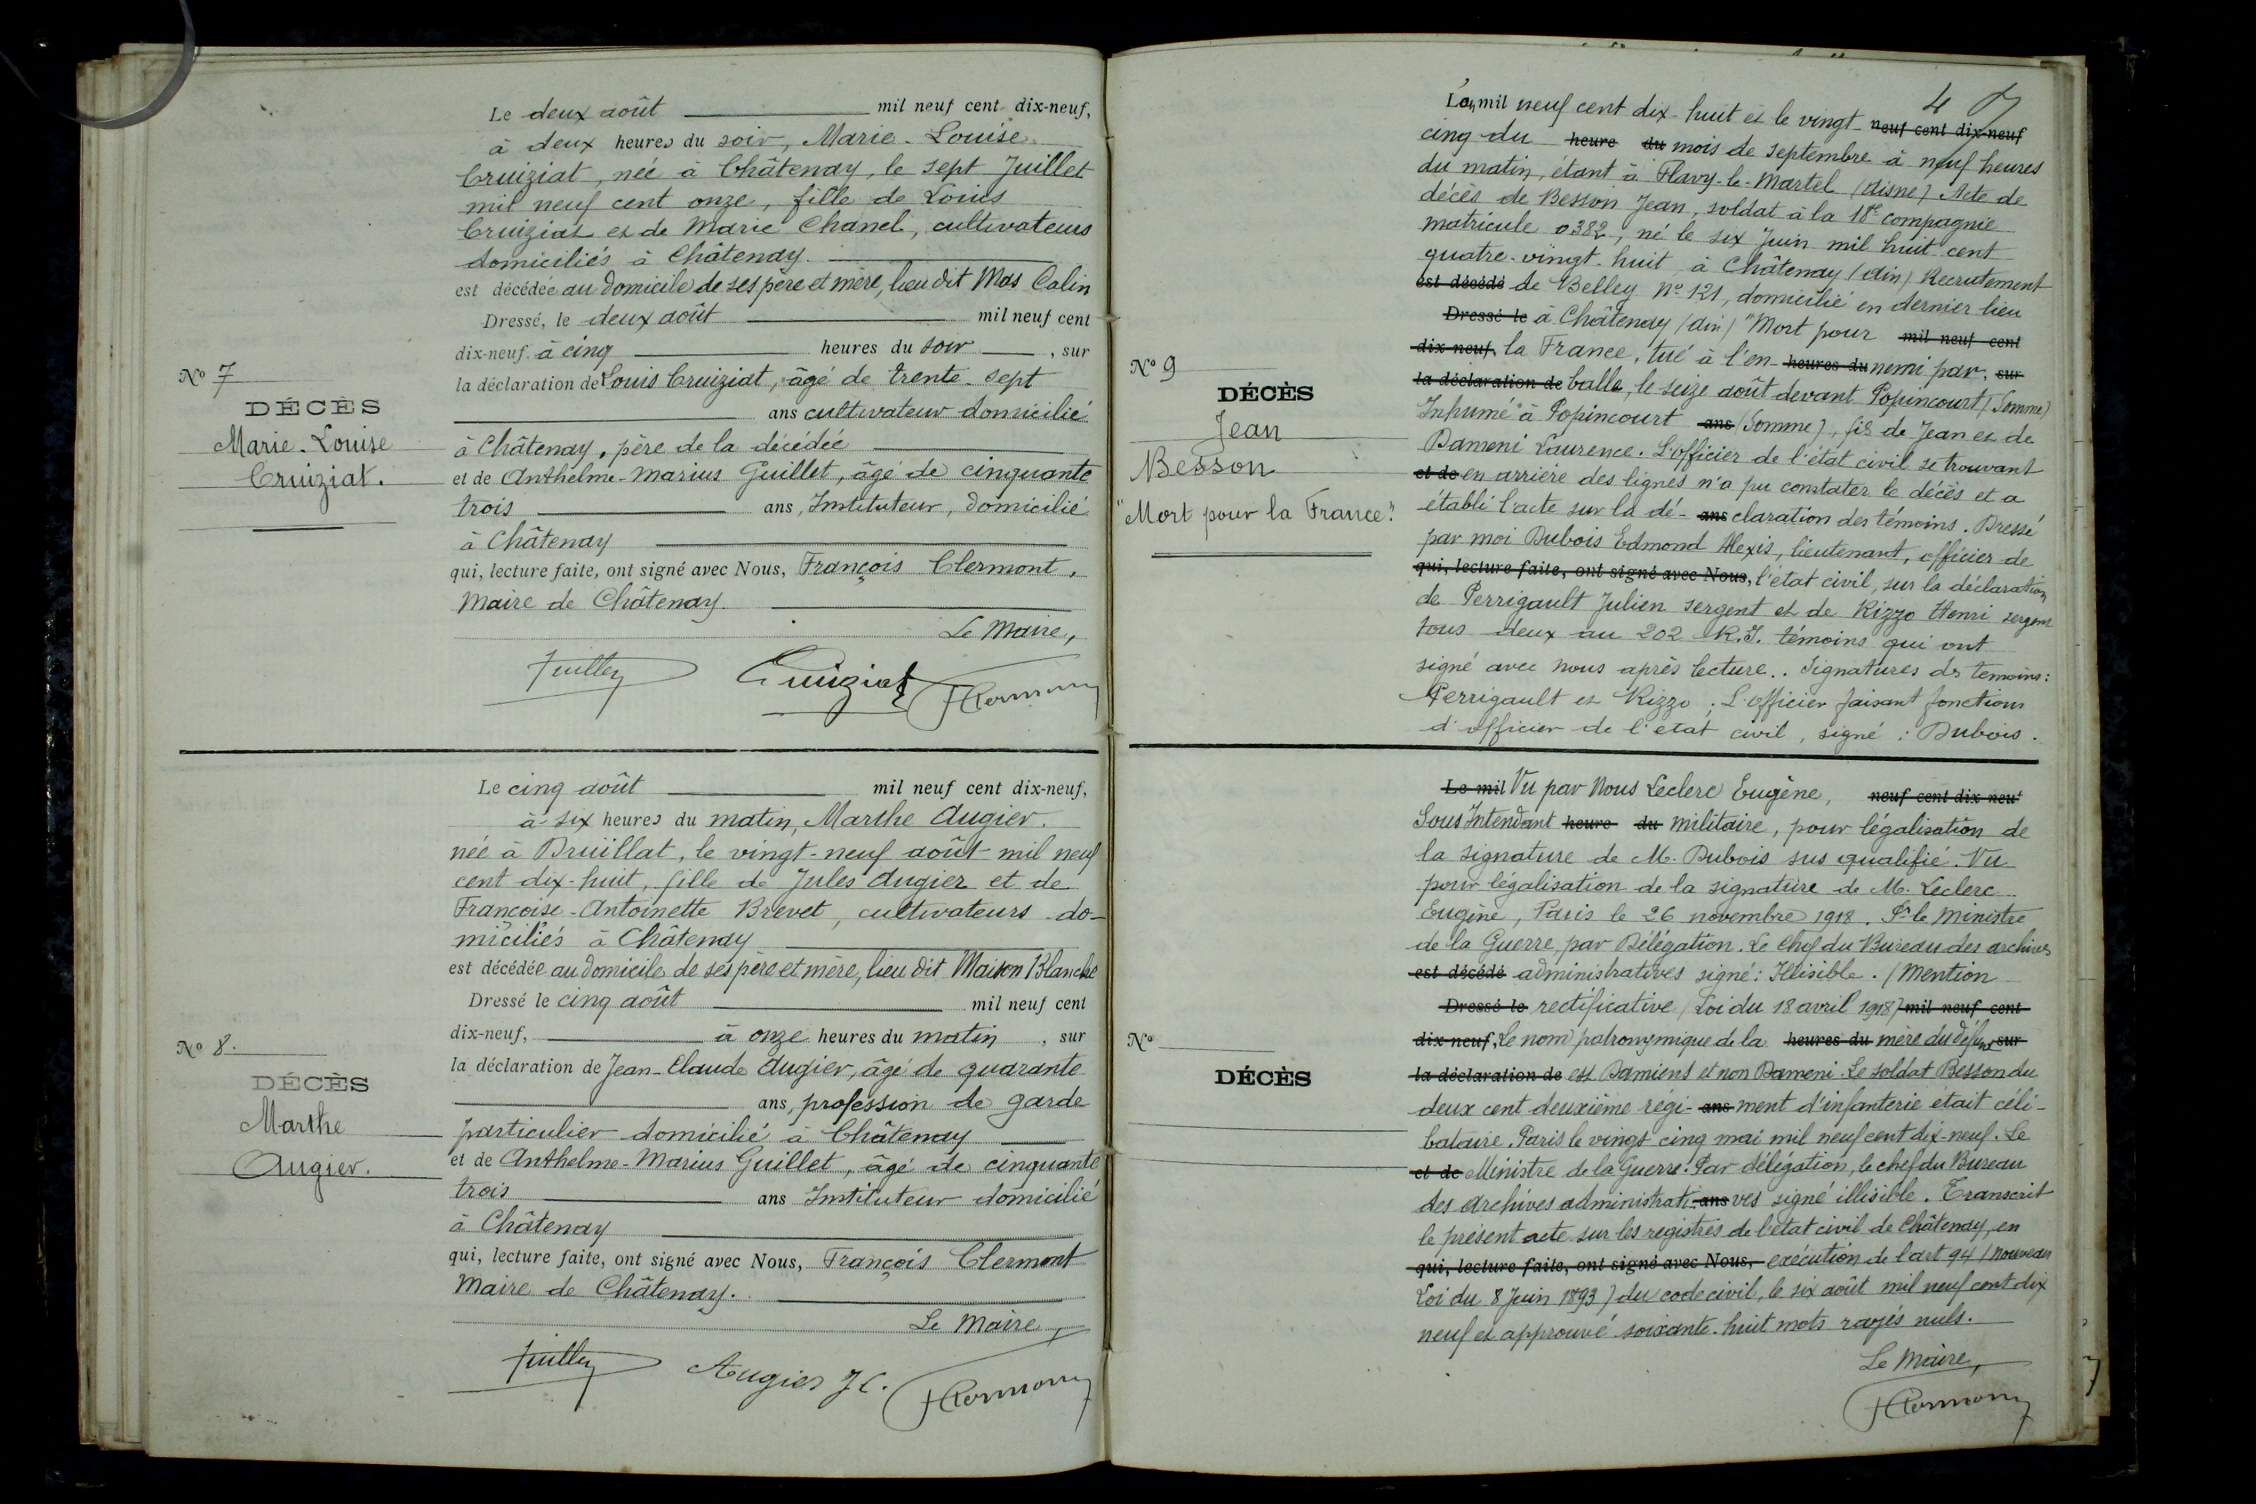 Le deux août mil neuf cent dix-neuf,
à deux heures du soir, Marie-Louise
Cruiziat, née à Châtenay, le sept Juillet
mil neuf cent onze, fille de Louis
Cruiziat et de Marie Chanel, cultivateurs
domiciliés à Châtenay.
est décédée au domicile de ses père et mère, lieu dit Mas Calin
Dressé, le deux août mil neuf cent
dix-neuf à cinq heures du soir, sur
la déclaration de Louis Cruiziat, âgé de trente-sept
ans cultivateur domicilié
à Châtenay, père de la décédée
et de Anthelme-Marius Guillet, âgé de cinquante
trois ans, Instituteur, domicilié
à Châtenay
qui, lecture faite, ont signé avec Nous, François Clermont,
Maire de Châtenay.
Le Maire,
Cruiziat
FClermont
No 7
DÉCÈS
Marie-Louise
Cruiziat.
Le cinq août mil neuf cent dix-neuf,
à six heures du matin, Marthe Augier.
née à Druillat, le vingt-neuf août mil neuf
cent dix-huit, fille de Jules Augier et de
Françoise-Antoinette Brevet, cultivateurs do-
miciliés à Châtenay
est décédée au domicile de ses père et mère, lieu dit Maison Blanche
Dressé le cinq août mil neuf cent
dix-neuf, à onze heures du matin, sur
la déclaration de Jean-Claude Augier, âgé de quarante
ans, profession de garde
particulier domicilié à Châtenay
et de Anthelme-Marius Guillet, âgé de cinquante
trois ans Instituteur domicilié
à Châtenay
qui, lecture faite, ont signé avec Nous, François Clermont
Maire de Châtenay.
Le Maire,
Augier J C.
FClermont
No 8.
DÉCÈS
Marthe
Augier.
4
L'an mil neuf cent dix-huit et le vingt- neuf cent dix-neuf
cinq du heure du mois de septembre à neuf heures
du matin, étant à Flavy-le-Martel (Aisne) Acte de
décès de Besson Jean, soldat à la 18e compagnie
matricule 0382, né le six Juin mil huit cent
quatre-vingt-huit à Châtenay (Ain) Recrutement
est décédé de Belley No 121, domicilié en dernier lieu
Dressé le à Châtenay (Ain) "Mort pour mil neuf cent
dix-neuf, la France, tué à l'en- heures du nemi par, sur
la déclaration de balle, le seize août devant Popincourt (Somme)
Inhumé à Popincourt ans (Somme), fils de Jean et de
Dameni Laurence. L'officier de l'état civil se trouvant
et de en arrière des lignes n'a pu constater le décès et a
établi l'acte sur la dé- ans claration des témoins. Dressé
par moi Dubois Edmond Alexis, lieutenant, officier de
qui, lecture faite, ont signé avec Nous, l'état civil, sur la déclaration
de Perrigault Julien sergent et de Rizzo Henri sergent
tous deux au 202 R.I. témoins qui ont
signé avec nous après lecture.. Signatures des témoins:
Perrigault et Rizzo; L'officier faisant fonctions
d'officier de l'état civil, signé: Dubois.
No 9
DÉCÈS
Jean
Besson
"Mort pour la France".
Le mil Vu par Nous Leclerc Eugène, neuf cent dix neuf
Sous Intendant heure du militaire, pour légalisation de
la signature de M. Dubois sus qualifié. Vu
pour légalisation de la signature de M. Leclerc
Eugène, Paris le 26 novembre 1918. Pr le Ministre
de la Guerre, par Délégation. Le Chef du Bureau des archives
est décédé administratives signé: Illisible. (Mention
Dressé le rectificative (Loi du 18 avril 1918) mil neuf cent
dix-neuf, Le nom patronymique de la heures du mère du défunt sur
la déclaration de est Damiens et non Dameni. Le soldat Besson du
deux cent deuxième régi- ans ment d'infanterie était céli-
bataire. Paris le vingt cinq mai mil neuf cent dix-neuf. Le
et de Ministre de la Guerre. Par délégation, le chef du Bureau
des Archives administrati- ans ves signé illisible. Transcrit
le présent acte sur les registres de l'état civil de Châtenay, en
qui, lecture faite, ont signé avec Nous, exécution de l'art 94 (nouveau
Loi du 8 Juin 1893) du code civil, le six août mil neuf cent dix
neuf et approuvé soixante-huit mots rayés nuls.
Le Maire,
FClermont
No
DÉCÈS